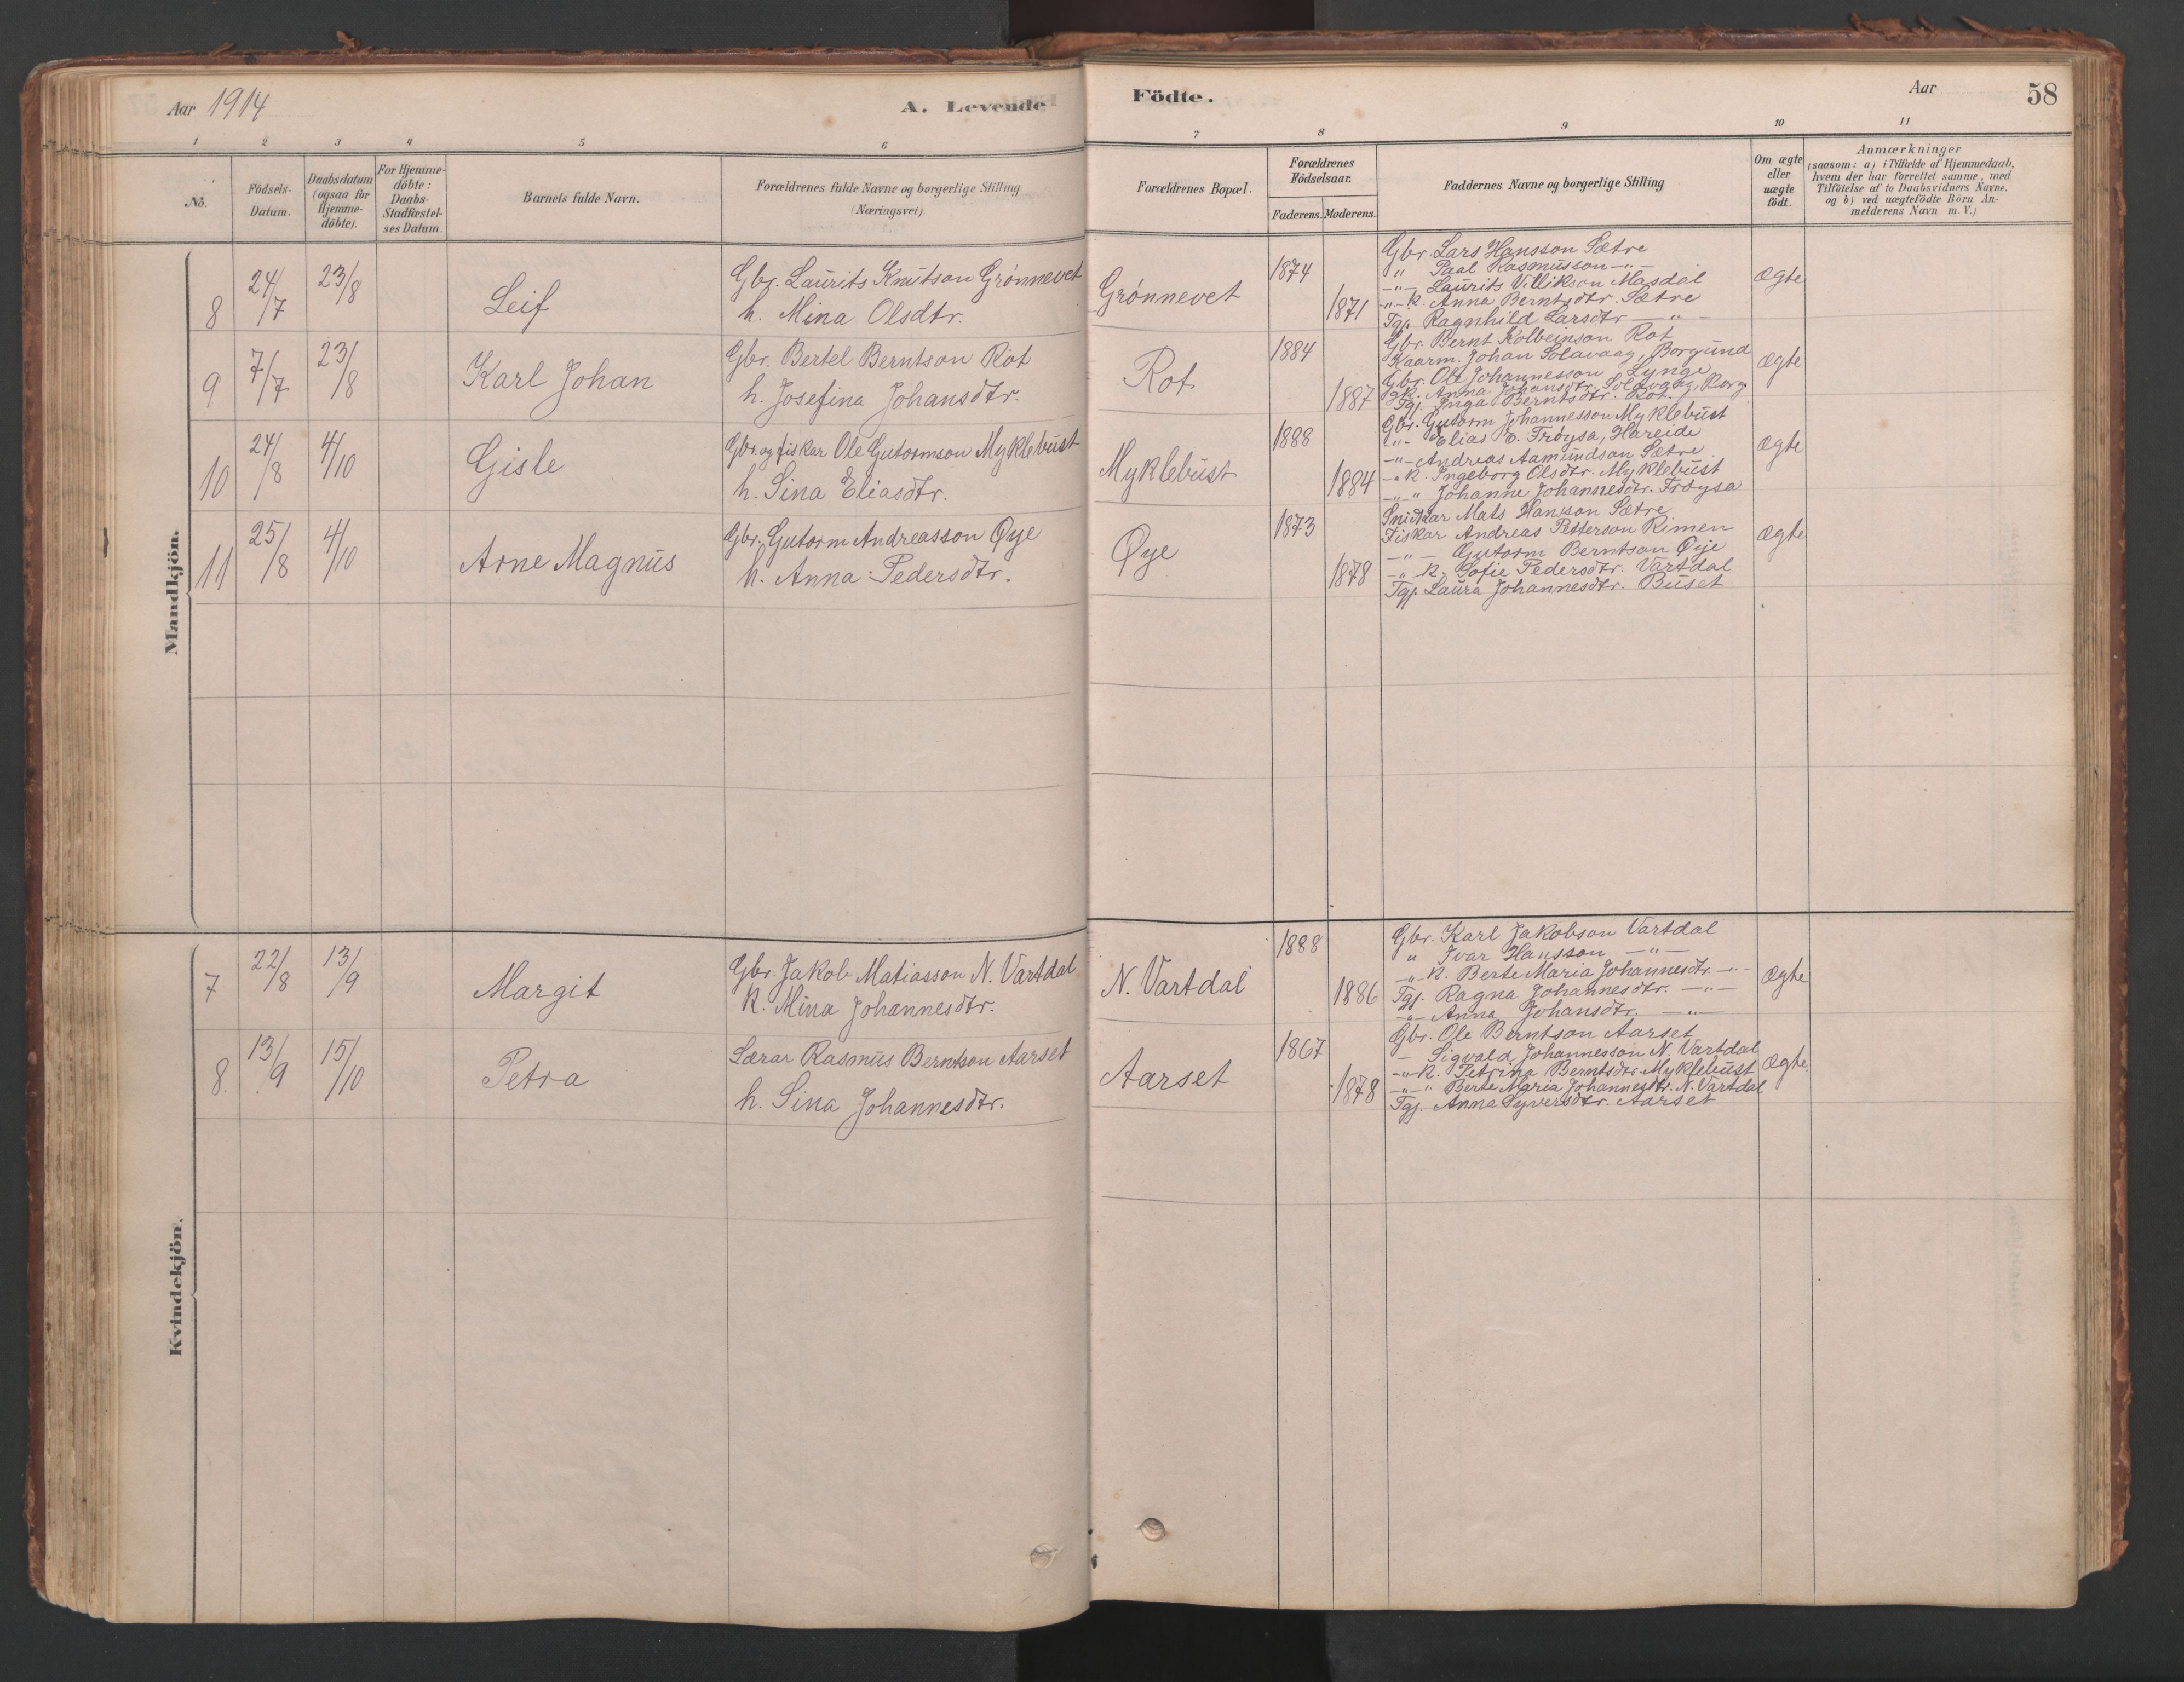 Aar 1914
A. Levende
Födte.
Aar
58
1 2 3 4 5 6 7 8 9 10 11
No.
Födsels-Datum.
Daabsdatum (ogsaa for Hjemme-döbte).
For Hjemme-döbte: Daabs-Stadfæstel-ses Datum.
Barnets fulde Navn.
Forældrenes fulde Navne og borgerlige Stilling (Næringsvei).
Forældrenes Bopæl.
Forældrenes Födselsaar.
Faderens. Moderens.
Faddernes Navne og borgerlige Stilling
Om ægte eller uægte födt.
Anmærkninger
(saasom: a) i Tilfælde af Hjemmedaab,
hvem der har forrettet samme, med
Tilföielse af to Daabsvidners Navne.
og b) ved uægtefödte Börn An-
melderens Navn m. V.)
Mandkjön.
8 24/7 23/8 Leif
Gbr. Laurits Knutson Grønnevet
h. Mina Olsdtr.
Grønnevet
1874
1871
Gbr. Lars Hansson Sætre
" Paal Rasmusson -"-
-"- Laurits Villikson Masdal
-"- k. Anna Berntsdtr. Sætre
Tgj. Ragnhild Larsdtr -"-
Ægte
9 7/7 23/8 Karl Johan
Gbr. Bertel Berntson Rot
h. Josefina Johansdtr.
Rot
1884
1887
Gbr. Bernt Kolbeinson Rot
Kaarm. Johan Solavaag, Borgund
Gbr. Ole Johannesson Lynge
Gbk. Anna Johansdtr. Solavaag, Borg
Tgj. Inga Berntsdtr. Rot.
Ægte
10 24/8 4/10 Gisle
Gbr. og fiskar Ole Gutormson Myklebust
h. Sina Eliasdtr.
Myklebust
1888
1884
Gbr. Gutorm Johannesson Myklebust
-"- Elias E. Frøysa, Hareide
-"- Andreas Aamundson Sætre
-"- k. Ingeborg Olsdtr. Myklebust
-"- " Johanne Johannesdtr. Frøysa
Ægte
11 25/8 4/10 Arne Magnus
Gbr. Gutorm Andreasson Øye
h. Anna Pedersdtr.
Øye
1873
1878
Snidkar Mats Hansson Sætre
Fiskar Andreas Petterson Rimen
-"- Gutorm Berntson Øye
-"- k. Sofie Pedersdtr. Vartdal
Tgj. Laura Johannesdtr. Buset
Ægte
Kvindekjön.
7 22/8 13/9 Margit
Gbr. Jakob Matiasson N. Vartdal
k. Mina Johannesdtr.
N. Vartdal
1888
1886
Gbr. Karl Jakobson Vartdal
" Ivar Hansson -"-
-"- k. Berte Maria Johannesdtr. -"-
Tgj. Ragna Johannesdtr. -"-
-"- Anna Johansdtr. -"-
Ægte
8. 13/9 15/10 Petra
Lærar Rasmus Berntson Aarset
h. Sina Johannesdtr.
Aarset
1867
1878
Gbr. Ole Berntson Aarset
- Sigvald Johannesson N. Vartdal
-"- k. Petrina Berntsdtr Myklebust
-"- " Berte Maria Johannesdtr. N. Vartdal
Tgj. Anna Syversdtr. Aarset
Ægte.